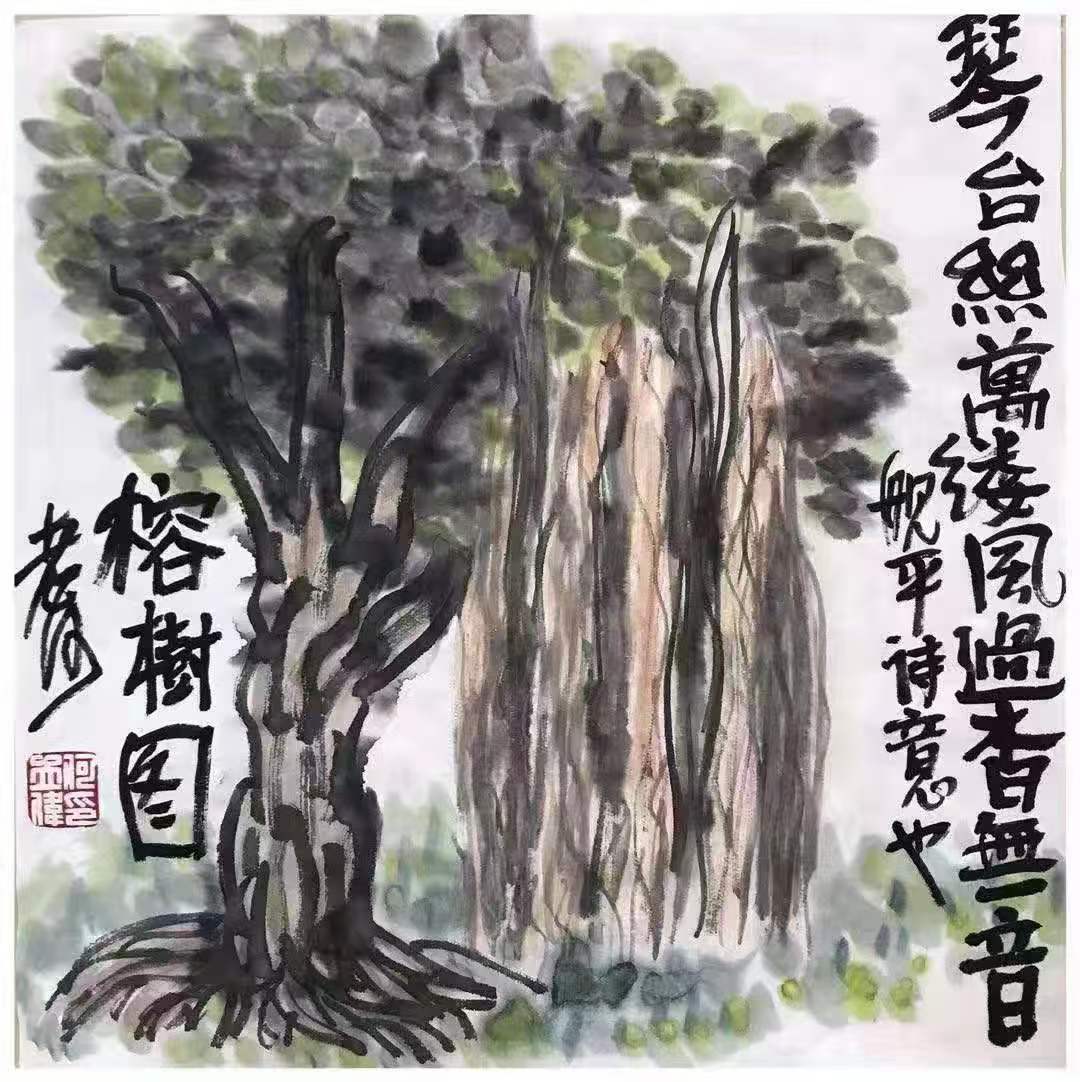 琴台絲萬缕風過杳無音
舰平诗意也
榕樹图
老何